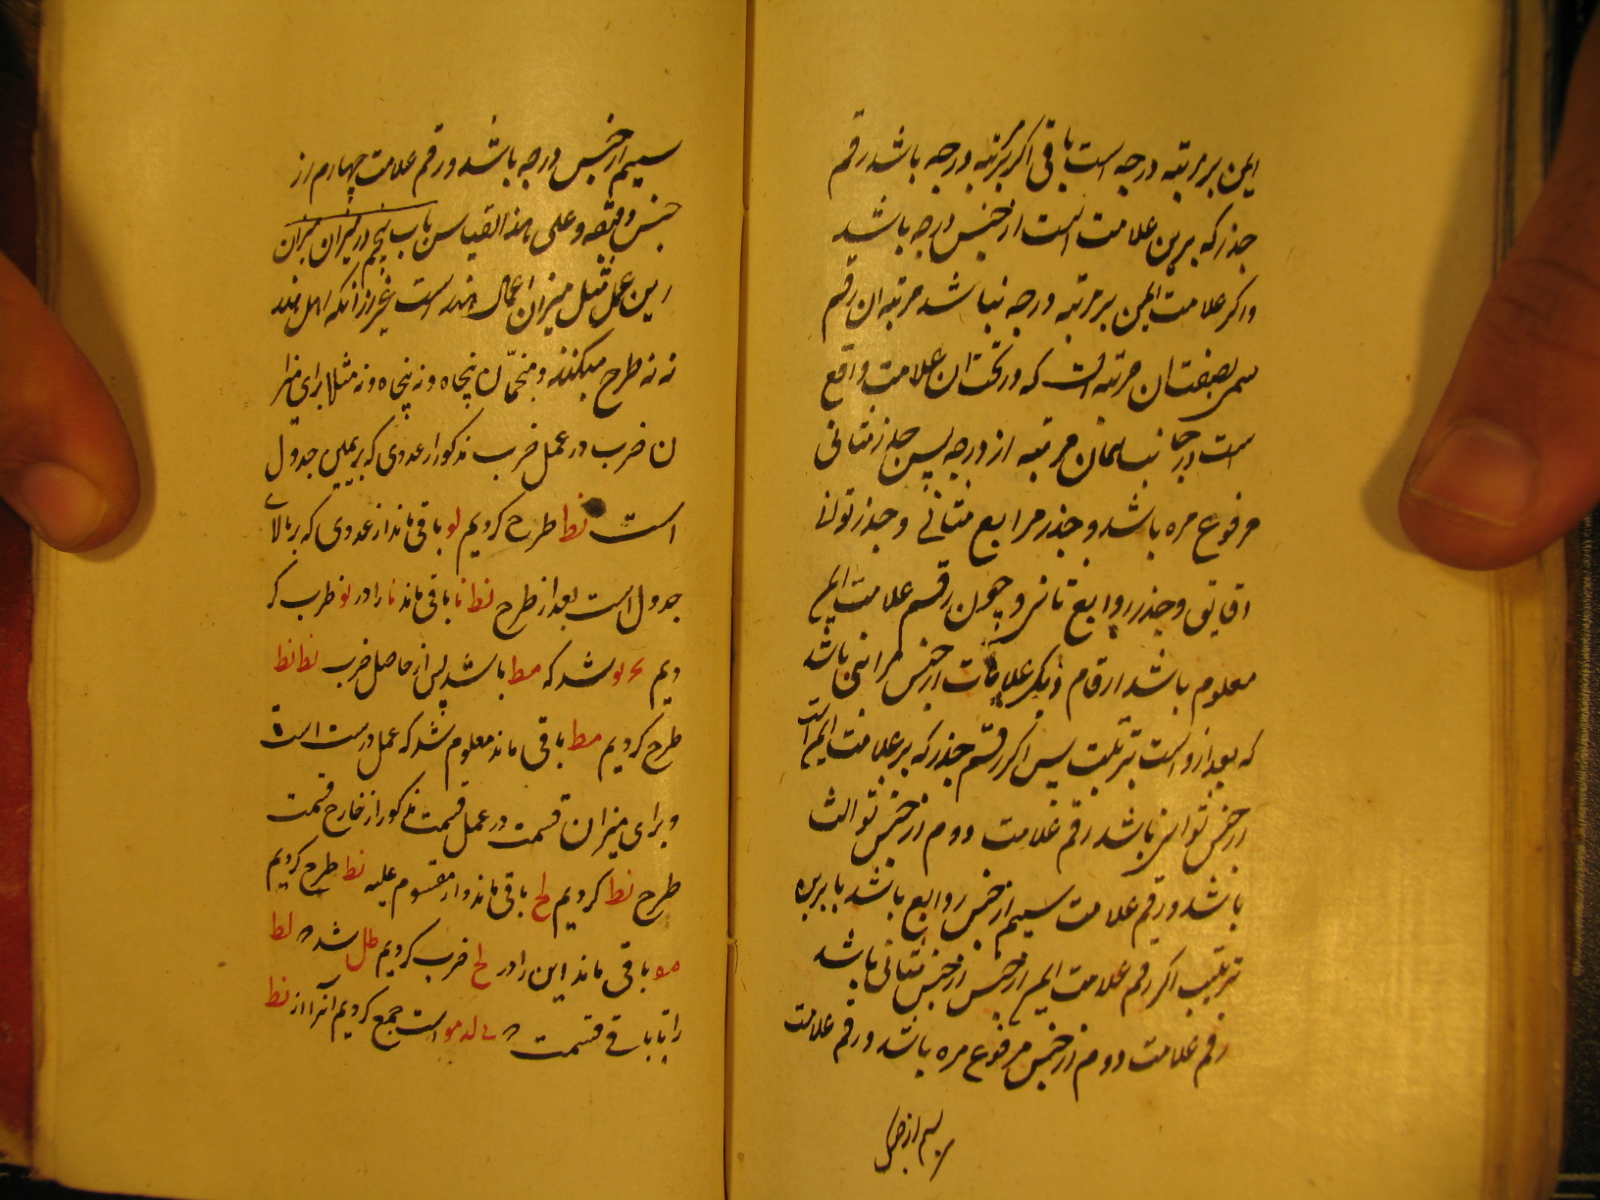 ایمن بر مرتبه درجه است باقی اگر بر مرتبه درجه باشد رقم
جذر که برین علامت است از جنس درجه باشد
و اگر علامت ایمن بر مرتبه درجه نباشد مرتبه ان رقم
سمی نصف ان مرتبه است که در تحت ان علامت واقع
است در جانب سمان مرتبه از درجه پس جذر مثانی
مرفوع مره باشد و جذر مرابع مثانی و جذر ثوانی
دقایق و جذر روابع ثانی و چون رقم علامت ایمن
معلوم باشد ارقام دیگر علامات از جنس مراتبی باشد
که بعد از و است بترتیب پس اگر رقم جذر که بر علامت ایمن است
از جنس ثوانی باشد رقم علامت دوم از جنس ثوالث
باشد و رقم علامت سیم از جنس روابع باشد بابرین
ترتیب اگر رقم علامت ایمن از جنس از جنس مثانی باشد
رقم علامت دوم از جنس مرفوع مره باشد و رقم علامت
سیم از جنس
سیم از جنس درجه باشد و رقم علامت چهارم از
جنس دقیقه و علی هذا القیاس باب پنجم در میزان میزان
این عمل مثل میزان اعمال هند است غیر از انکه اهل هند
نه نه طرح میکنند و منجمان پنجاه و نه پنجاه و نه مثلا برای میزا
ن ضرب در عمل ضرب مذکور از عددی که بر یمین جدول
است نط طرح کردیم لو باقی ماند از عددی که بر بالای
جدول است بعد از طرح نط نا باقی ماند نا را در لو ضرب کر
دیم شد که مط باشد پس از حاصل ضرب نط نط
طرح کردیم مط باقی ماند معلوم شد که عمل درست است
و برای میزان قسمت در عمل قسمت مذکور از خارج قسمت
طرح نط کردیم لح باقی ماند و از مقسوم علیه نط طرح کردیم
مو باقی ماند این را در لح ضرب کردیم شد لط
را با باقی قسمت که لد مو است جمع کردیم آنرا از نط